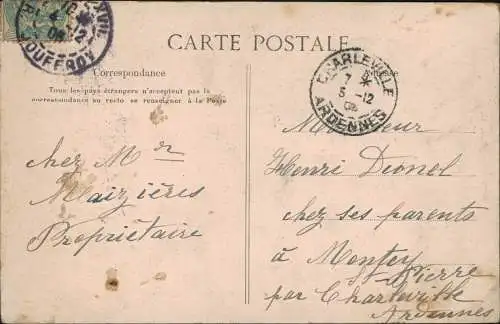 CARTE POSTALE
Correspondance
Tous les pays étrangers n'acceptent pas la
correspondance au recto se renseigner à la Poste
JOUFFROY
12
08
CHARLEVILLE
7 *
5 -12
08
ARDENNES
chez Mr
Maizières
Propriétaire
Monsieur
Henri Dionel
chez ses parents
à Montcy
St Pierre
par Charleville
Ardennes